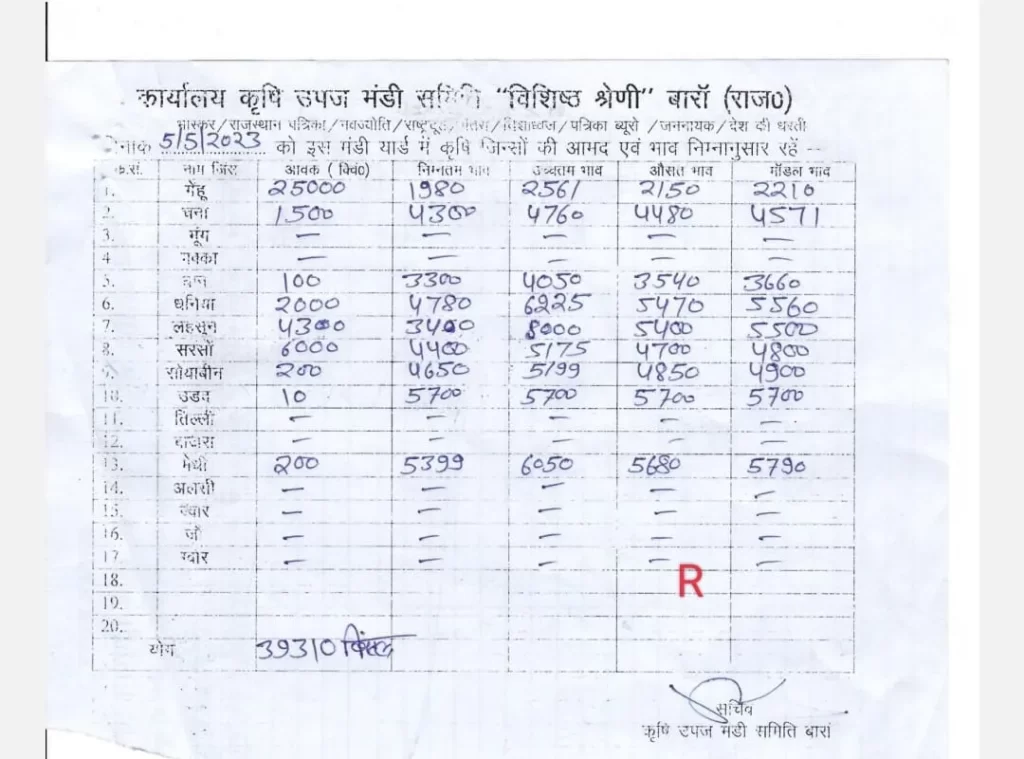 कार्यालय कृषि उपज मंडी समिति "विशिष्ठ श्रेणी" बारॉ (राज0)
भास्कर/राजस्थान पत्रिका/नवज्योति/राष्ट्रदूत/ /पत्रिका ब्यूरो /जननायक/देश की धरती
5/5/2023 को इस मंडी यार्ड में कृषि जिन्सों की आमद एवं भाव निम्नानुसार रहें --
क्र.सं. नाम जिंस आवक ( क्विं0) निम्नतम भाव उच्चतम भाव औसत भाव मॉडल भाव
1. गेंहू 25000 1980 2561 2150 2210
2. चना 1500 4300 4760 4480 4571
3. मूंग — — — — —
4 मक्का — — — — —
5. 100 3300 4050 3540 3660
6. धनिया 2000 4780 6225 5470 5560
7. लहसून 4300 3400 8000 5400 5500
8. सरसों 6000 4400 5175 4700 4800
9. सोयाबीन 200 4650 5199 4850 4900
10. उडद 10 5700 5700 5700 5700
11. तिल्ली — — — — —
12. बाजरा — — — — —
13. मेथी 200 5399 6050 5680 5790
14. अलसी — — — — —
15. ज्वार — — — — —
16. जौ — — — — —
17. ग्वार — — — — —
R
18.
19.
20.
योग 39310 क्विंटल
सचिव
कृषि उपज मंडी समिति बारां